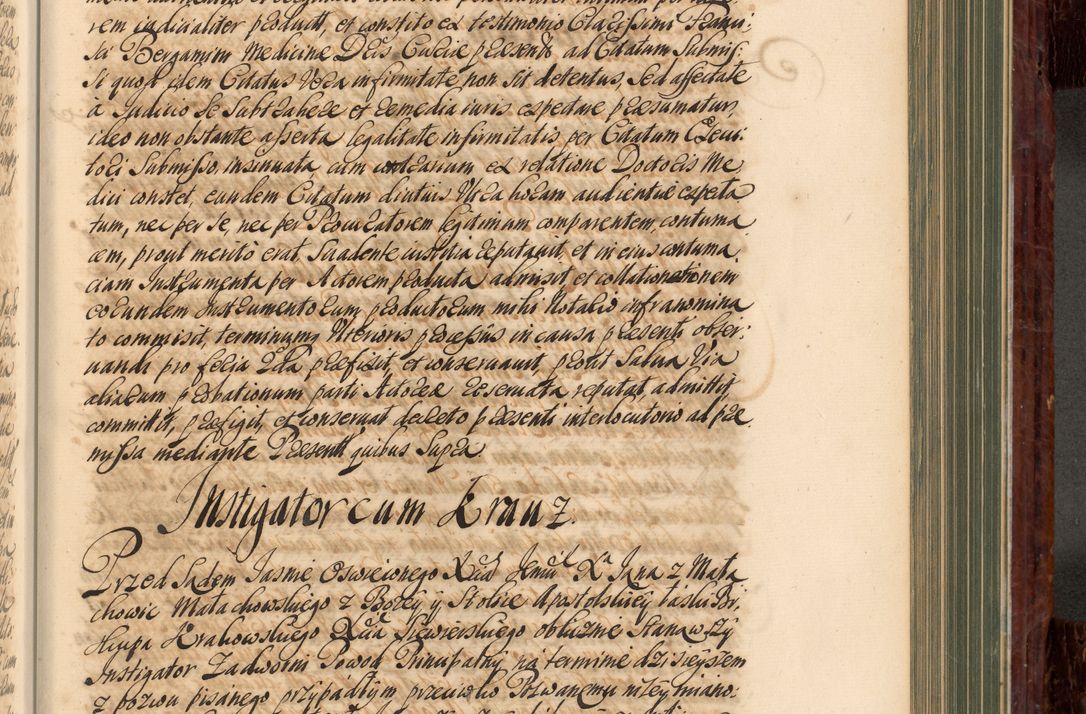 rem iudicialiter produxit, et constito ex testimonio Clarissimi Franci:
sci Bergamim Medicinæ Dris Curiæ præsenti ad Citatum Submis:
si quod idem Citatus Vera infirmitate non sit detentus, Sed affectate
a Judicio Se Subtrahere et remedia iuris expectare præsumatur,
ideo non obstante asserta legalitate infirmitatis per Citatum Execu:
tori Submisso, insinuata, cum contrarium ex relatione Doctoris Me,
dici constet, eundem Citatum diutius Ultra horam audientiæ expecta
tum, nec per Se, nec per Procuratorem legitimum comparentem, contuma
cem, prout meritò erat, Suadente iustitia reputavit, et in eius contuma,
ciam Instrumenta per Actorem producta admisit et collationationem
eorundem Instrumentorum productorum mihi Notario infranomina
to commisit, terminumq Ulterioris processus in causa præsenti obser:
vandi pro feria 2da præfixit, et conservavit, prout Salva Via
aliarum probationum parti Actoreæ reservata reputat, admittit,
committit, præfigit, et conservat decreto præsenti interlocutorio ad præ
missa mediante Præsentt quibus Supra.
Instigator cum Krauz.
Przed Sądem Jasnie Oswieconego Xcia Jemci Xa Jana z Mała
chowic Małachowskiego z Bozey y Stolice Apostolskiey łaski Bi,
skupa Krakowskiego Xcia Siewierskiego oblicznie Stanąwszy
Instigator Zadworni Powod Principalny na terminie dzisieyszem
z pozwu pisanego przypadłym przeciwko Pozwanemu niżey miano: